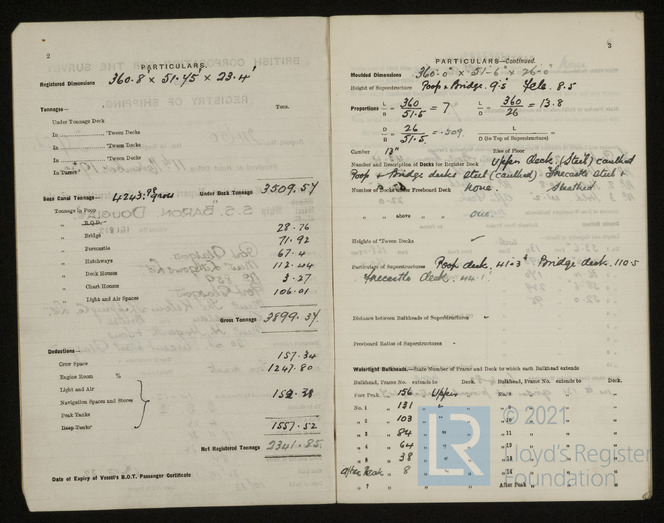 2
PARTICULARS.
Registered Dimensions 360.8 × 51.75 × 23.4'
Tonnages— Tons.
Under Tonnage Deck
In 'Tween Decks
In 'Tween Decks
In 'Tween Decks
In Turret
Suez Canal Tonnage - 4243.98 gross Under Deck Tonnage 3509.57
Tonnage in Poop 28.76
„ R.Q.D.
„ Bridge 71.92
„ Forecastle 67.4
„ Hatchways 112.44
„ Deck Houses
„ Chart Houses 3.27
„ Light and Air Spaces 106.01
Gross Tonnage 3899.37
Deductions—
Crew Space 157.34
Engine Room % 1247.80
Light and Air
Navigation Spaces and Stores 152.38
Peak Tanks
Deep Tanks
1557.52
Net Registered Tonnage 2341.85
Date of Expiry of Vessel's B.O.T. Passenger Certificate
3
PARTICULARS—Continued.
Moulded Dimensions 360'.0" × 51'-6" × 26'.0"
Height of Superstructure Poop & Bridge. 9'.5 Fcle. 8.5
Proportions L/B 360/51.5 = 7 L/D 360/26 = 13.8
D/B = 26/51.5 = .509 L/D (to Top of Superstructure) =
Camber 13" Rise of Floor
Number and Description of Decks for Register Deck Upper deck (Steel) caulked
Poop & Bridge decks steel (caulked) Forecastle steel &
Number of Decks below Freeboard Deck None. Sheathed.
„ „ above „ One.
Heights of 'Tween Decks
Particulars of Superstructures Poop deck. 41.3 Bridge deck. 110.5
Forecastle deck. 44.1
Distance between Bulkheads of Superstructures
Freeboard Ratios of Superstructures
Watertight Bulkheads.—State Number of Frame and Deck to which each Bulkhead extends
Bulkhead, Frame No. extends to Deck. Bulkhead, Frame No. extends to Deck.
Fore Peak 156 Upper No. 8
No. 1 131 „ 9
„ 2 103 „ 10
„ 3 84 „ 11
„ 4 64 „ 12
„ 5 38 „ 13
After Peak 8 „ 14
„ 7 After Peak „
© 2021
LR
Lloyd's Register
Foundation